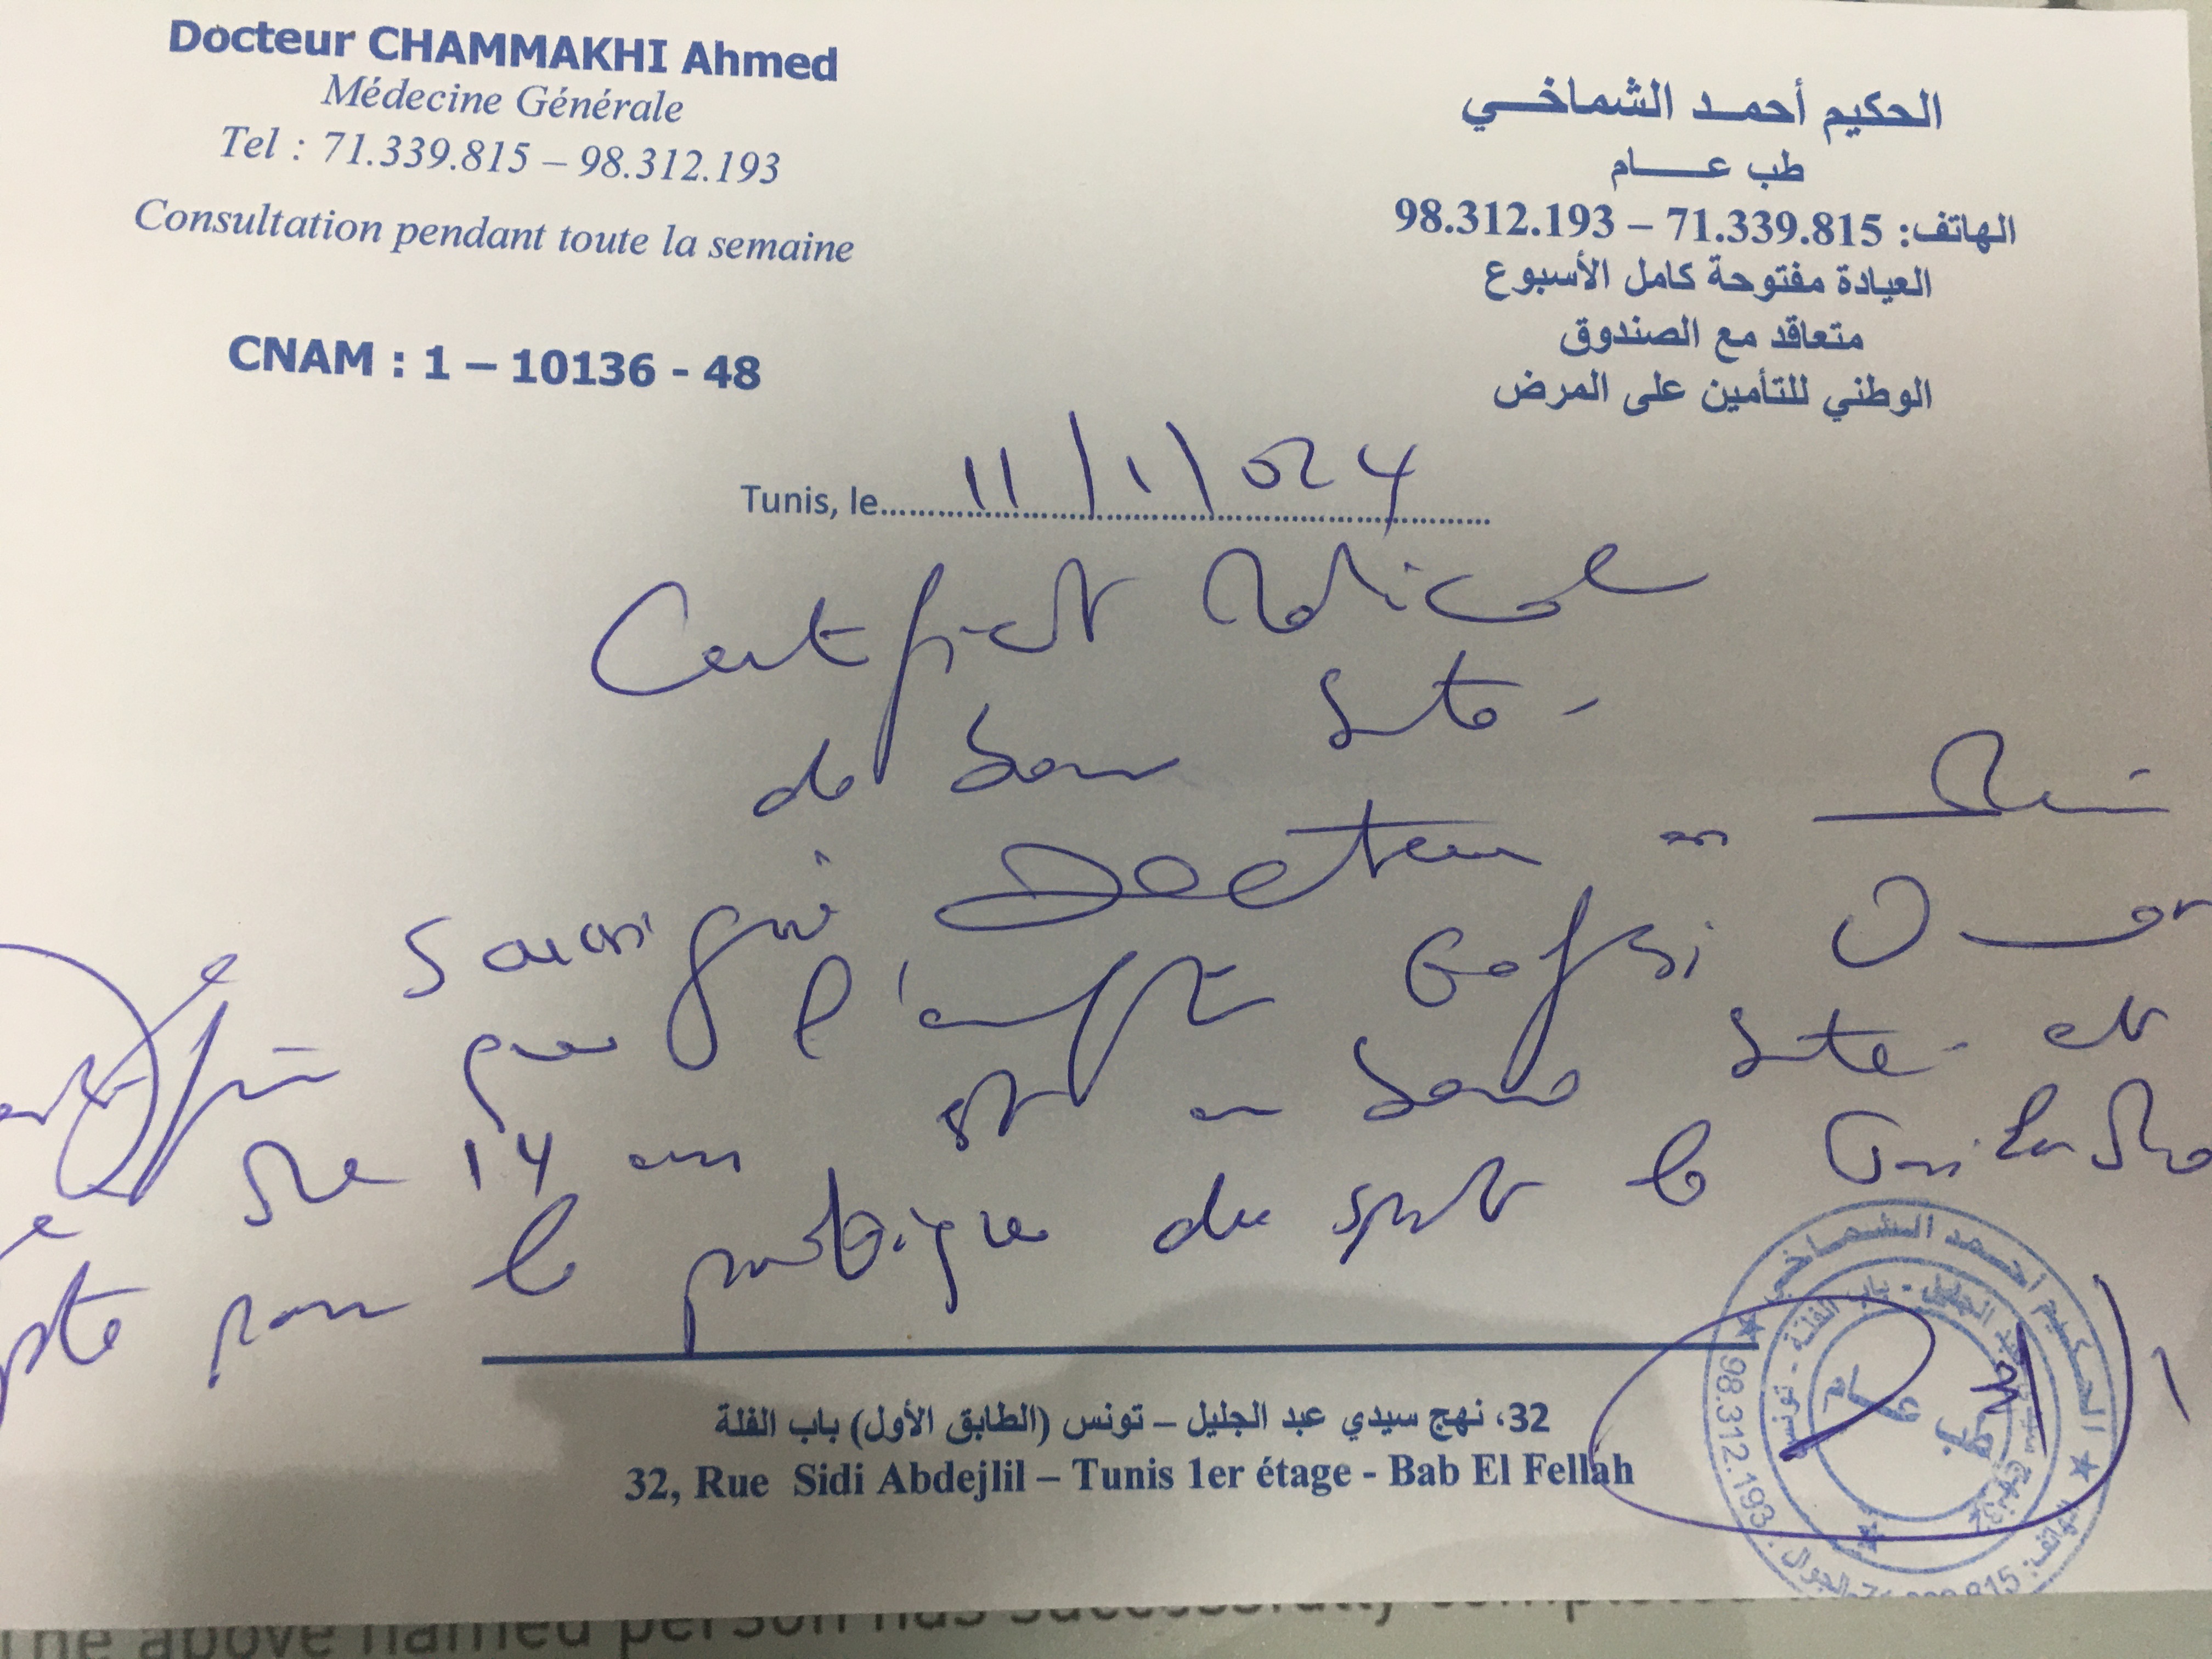 Docteur CHAMMAKHI Ahmed
Médecine Générale
Tel : 71.339.815 – 98.312.193
Consultation pendant toute la semaine
CNAM : 1 – 10136 - 48
الحكيم أحمد الشماخي
طب عام
الهاتف: 71.339.815 – 98.312.193
العيادة مفتوحة كامل الأسبوع
متعاقد مع الصندوق
الوطني للتأمين على المرض
Tunis, le 11/1/024
Certificat Médicale
de bonne santé
Soussigné Docteur en
que l'enfant Gafsi Omar
14 ans est en bonne santé et
pour la pratique du sport le
32، نهج سيدي عبد الجليل – تونس (الطابق الأول) باب الفلة
32, Rue Sidi Abdejlil – Tunis 1er étage - Bab El Fellah
الحكيم أحمد الشماخي
باب الفلة - تونس
طب عام
98.312.193
The above named person has successfully completed